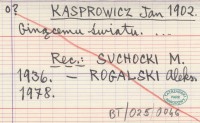 o? KASPROWICZ Jan 1902.
Ginącemu światu. ...
Rec.: SUCHOCKI M.
1936. — ROGALSKI Aleks.
1978.
BT/025/0066